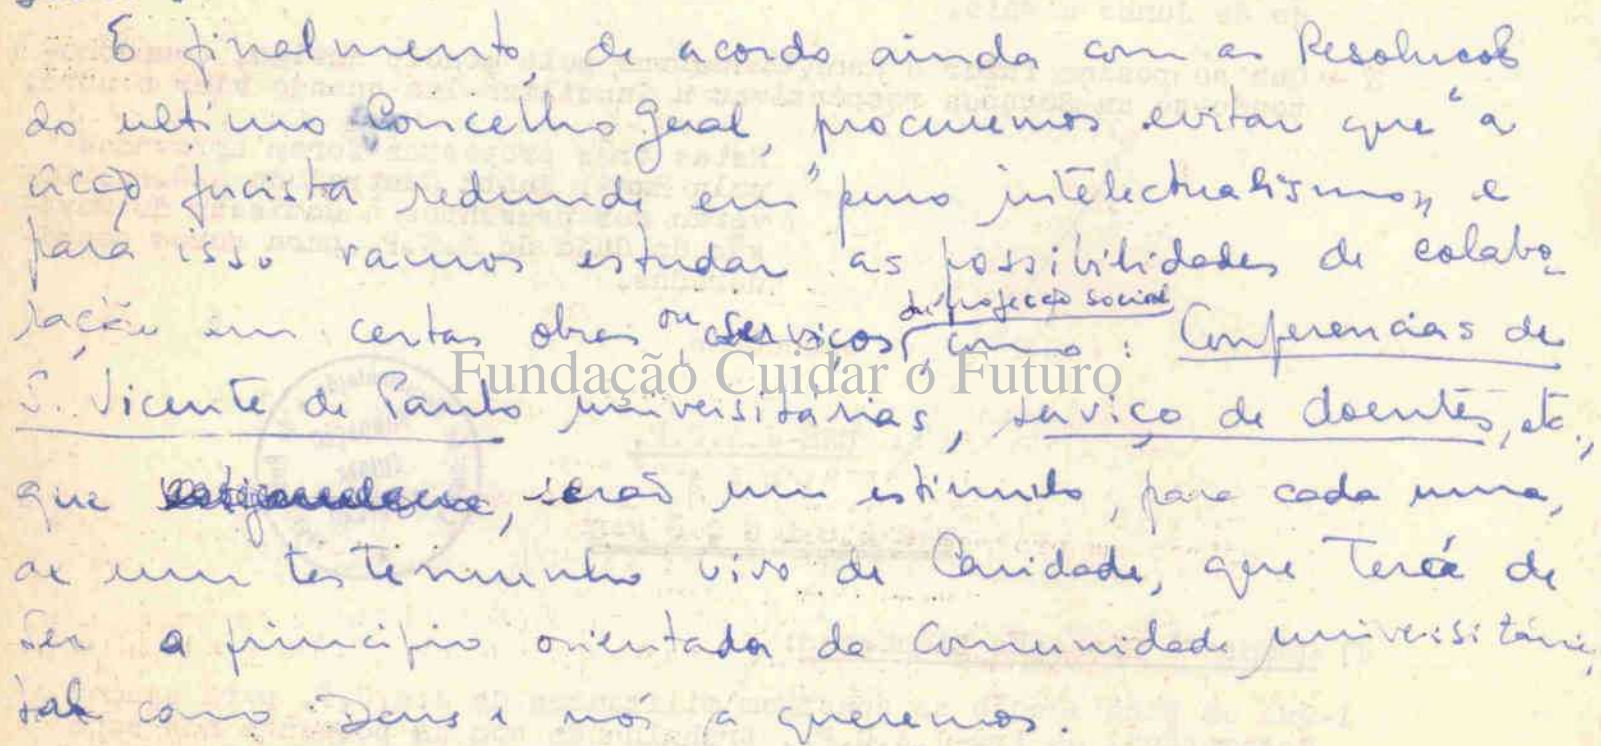 E finalmente, de acordo ainda com as Resoluções
do ultimo Concelho Geral, procuremos evitar que "a
acção jucista redunde em "puro intelectualismo„ e
para isso vamos estudar as possibilidades de colabo-
ração em certas obras ou serviços de projecção social, como: Conferencias de
S. Vicente de Paulo universitárias, serviço de doentes, etc.,
que serão um estimulo, para cada uma,
de um testemunho vivo de Caridade, que terá de
ser o principio orientador da Comunidade universitária,
tal como Deus e nós a queremos.
Fundação Cuidar o Futuro